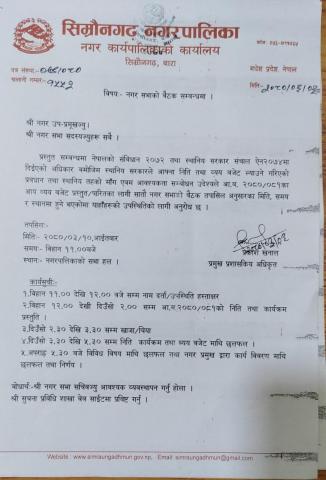 सिम्रौनगढ नगरपालिका
नगर कार्यपालिकाको कार्यालय
सिम्रौनगढ, बारा
पत्र संख्याः-०७९/०८०
मधेश प्रदेश, नेपाल
चलानी नम्बरः-
मितिः-२०८०/०३/०२
विषयः- नगर सभाको बैठक सम्बन्धमा ।
श्री नगर उप-प्रमुखज्यु।
श्री नगर सभा सदस्यज्युहरू सबै ।
प्रस्तुत सम्बन्धमा नेपालको संविधान २०७२ तथा स्थानिय सरकार संचालन ऐन२०७४मा
दिईएको अधिकार बमोजिम स्थानिय सरकारले आफ्ना निति तथा व्यय बजेट ल्याउने गरिएको
प्रवधान तथा स्थानिय तहको माँग एवम आवश्यकता सम्बोधन उदेश्यले आ.व. २०८०/०८१का
आय व्यय बजेट प्रस्तुत/पारितका लागी सातौं नगर सभाको बैठक तपसिल अनुसारका मिति, समय
र स्थानमा हुने भएकोमा यहाँहरूको उपस्थितिको लागी अनुरोध छ ।
तपसिलः-
मितिः- २०८०/०३/१०,आईतबार
समयः- बिहान ११.००बजे
स्थानः- नगरपालिकाको सभा हल ।
प्रकाश खनाल
प्रमुख प्रशासकिय अधिकृत
कार्यसुचीः-
१.बिहान ११.०० देखि १२.०० बजे सम्म नाम दर्ता/उपस्थिति हस्ताक्षर
२.बिहान १२.०० देखी दिउँसो २.०० सम्म आ.व.२०८०/०८१को निति तथा कार्यक्रम
प्रस्तुति ।
३.दिउँसो २.३० देखि ३.३० सम्म खाजा/चिया
४.दिउँसो ३.३० देखि ५.३० सम्म निति कार्यक्रम तथा व्यय बजेट माथि छलफल ।
५.अपराह्न ५.३० बजे विविध विषय माथि छलफल तथा नगर प्रमुख द्वारा कार्य विवरण माथि
छलफल तथा निर्णय ।
बोधार्थः-श्री नगर सभा सचिवज्यु आवश्यक व्यवस्थापन गर्नु होला ।
श्री सुचना प्रविधि शाखा वेब साईटमा प्रविष्ट गर्नु ।
Website : www.simraungadhmun.gov.np, Email: simraungadhmun@gmail.com